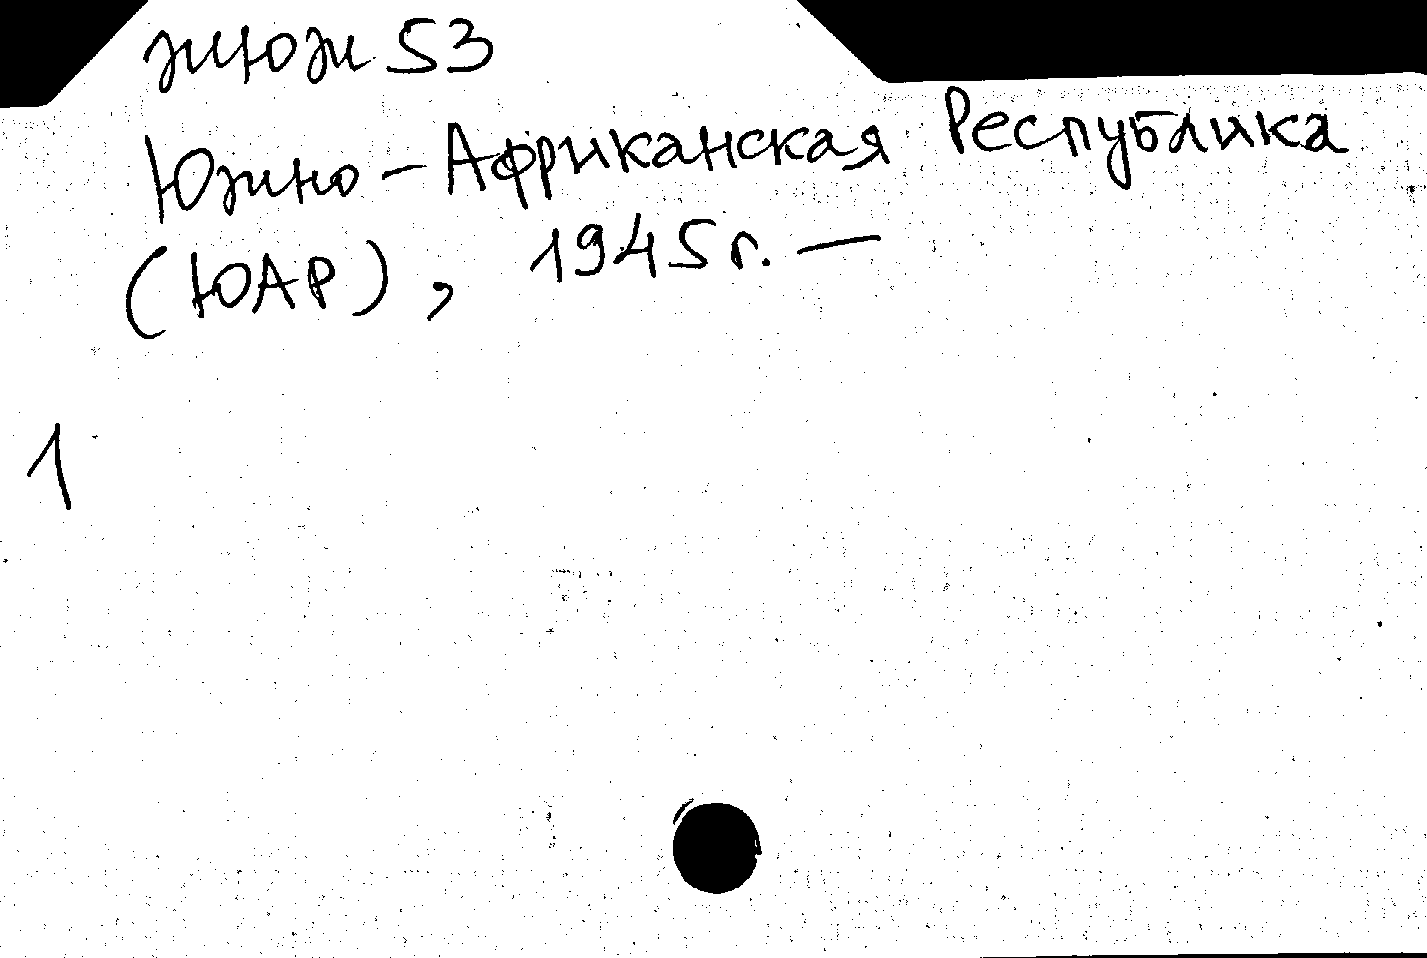 жюж 53
Южно-Африканская Республика
(ЮАР), 1945 г. —
1